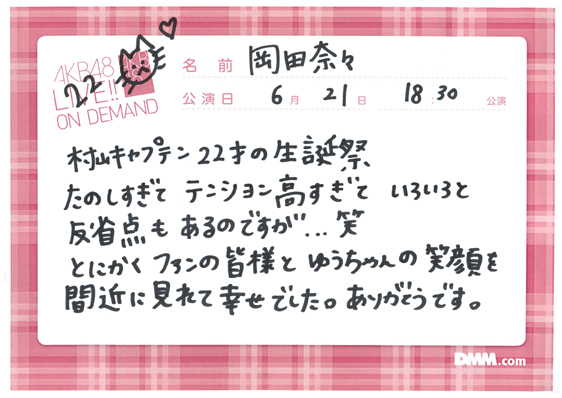 AKB48
LIVE!!
ON DEMAND
22
名前 岡田奈々
公演日 6月 21日 18:30 公演
村山キャプテン22才の生誕祭
たのしすぎて テンション高すぎて いろいろと
反省点も あるのですが...笑
とにかく ファンの皆様と ゆうちゃんの 笑顔を
間近に見れて幸せでした。ありがとうです。
DMM.com